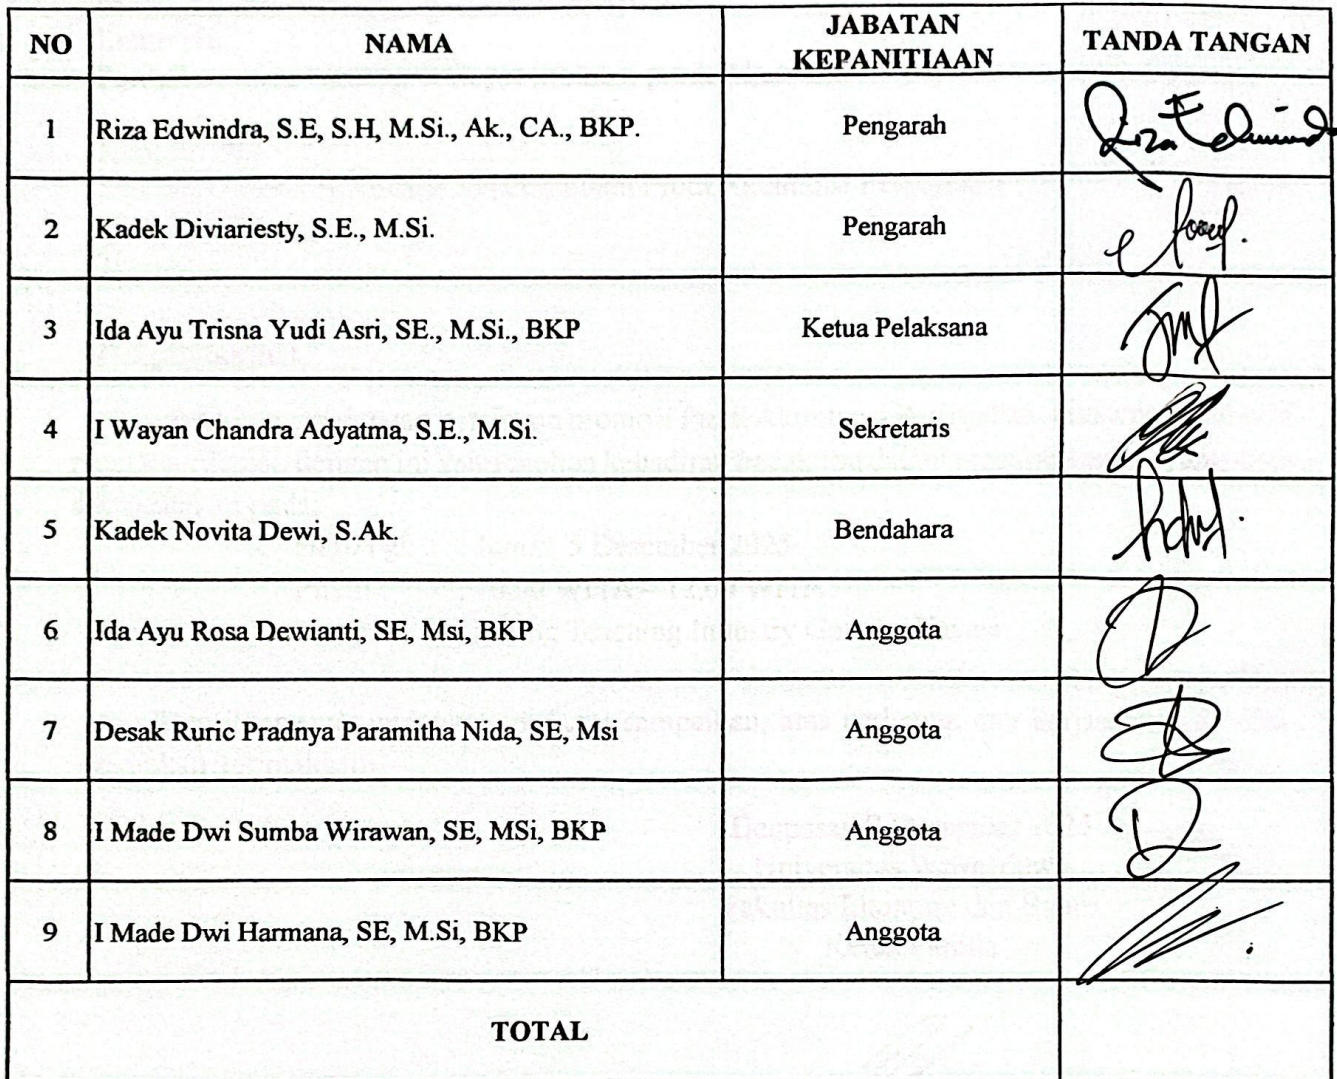 NO NAMA JABATAN KEPANITIAAN TANDA TANGAN
1 Riza Edwindra, S.E, S.H, M.Si., Ak., CA., BKP. Pengarah Riza Edwind
2 Kadek Diviariesty, S.E., M.Si. Pengarah
3 Ida Ayu Trisna Yudi Asri, SE., M.Si., BKP Ketua Pelaksana
4 I Wayan Chandra Adyatma, S.E., M.Si. Sekretaris
5 Kadek Novita Dewi, S.Ak. Bendahara
6 Ida Ayu Rosa Dewianti, SE, Msi, BKP Anggota
7 Desak Ruric Pradnya Paramitha Nida, SE, Msi Anggota
8 I Made Dwi Sumba Wirawan, SE, MSi, BKP Anggota
9 I Made Dwi Harmana, SE, M.Si, BKP Anggota
TOTAL